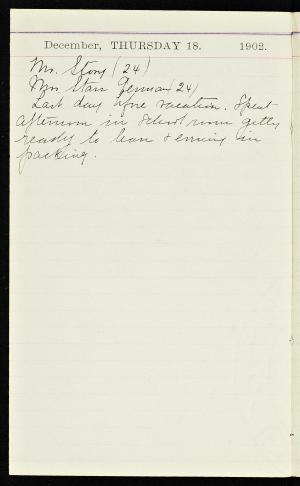 December, THURSDAY 18. 1902.
Mr. Story (24)
Mrs Starr German (24)
Last day before vacation. Spent
afternoon in school room getting
ready to leave & evening in
packing.